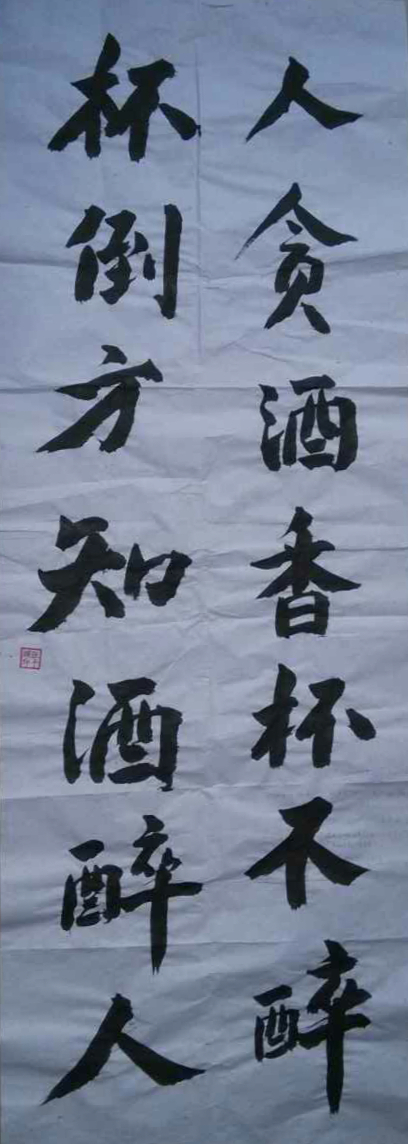 人贪酒香杯不醉
杯倒方知酒醉人